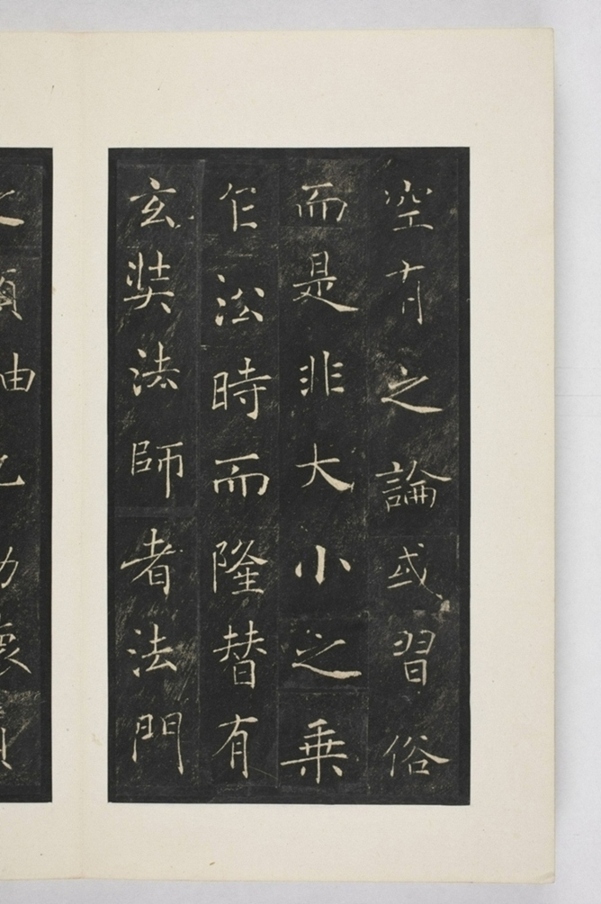 空有之論或習俗
而是非大小之乘
乍沿時而隆替有
玄奘法師者法門